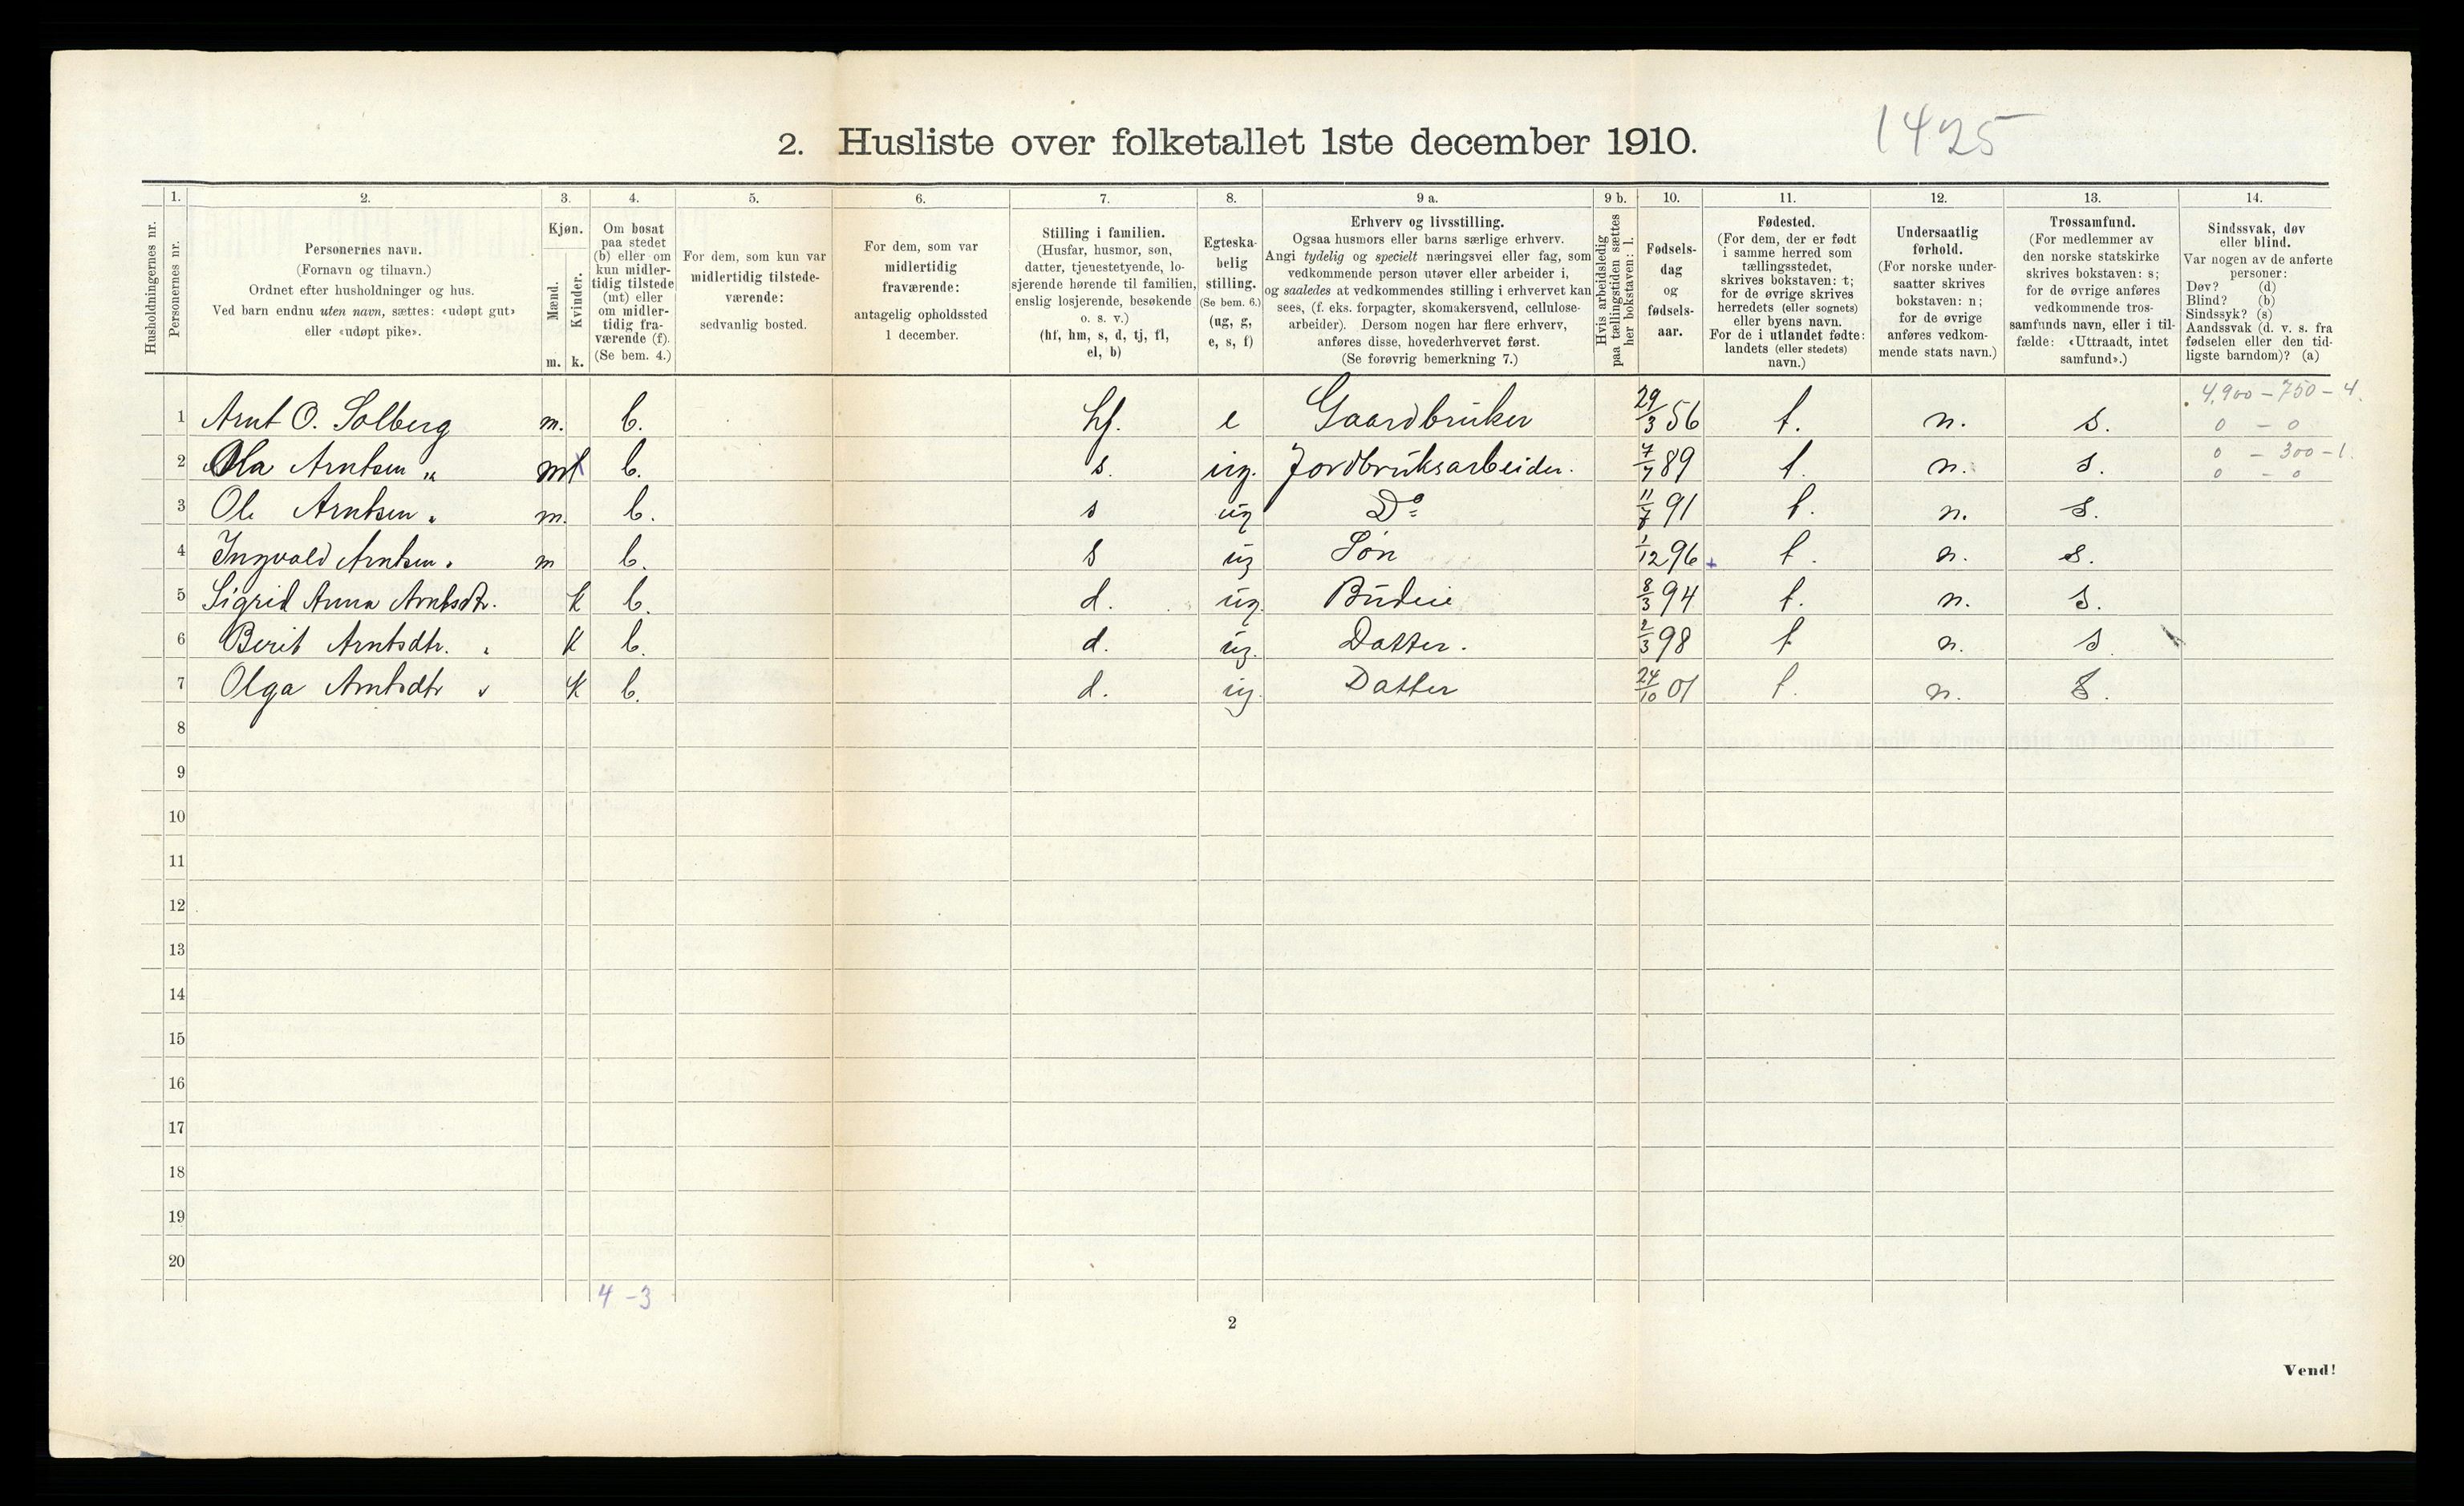 1425
2. Husliste over folketallet 1ste december 1910.
1. 2. 3. 4. 5. 6. 7. 8. 9 a. 9 b. 10. 11. 12. 13. 14.
Husholdningernes nr.
Personernes nr.
Personernes navn.
(Fornavn og tilnavn.)
Ordnet efter husholdninger og hus.
Ved barn endnu uten navn, sættes: «udøpt gut»
eller «udøpt pike».
Kjøn.
Mænd.
Kvinder.
m. k.
Om bosat
paa stedet
(b) eller om
kun midler-
tidig tilstede
(mt) eller
om midler-
tidig fra-
værende (f).
(Se bem. 4.)
For dem, som kun var
midlertidig tilstede-
værende:
sedvanlig bosted.
For dem, som var
midlertidig
fraværende:
antagelig opholdssted
1 december.
Stilling i familien.
(Husfar, husmor, søn,
datter, tjenestetyende, lo-
sjerende hørende til familien,
enslig losjerende, besøkende
o. s. v.)
(hf, hm, s, d, tj, fl,
el, b)
Egteska-
belig
stilling.
(Se bem. 6.)
(ug, g,
e, s, f)
Erhverv og livsstilling.
Ogsaa husmors eller barns særlige erhverv.
Angi tydelig og specielt næringsvei eller fag, som
vedkommende person utøver eller arbeider i,
og saaledes at vedkommendes stilling i erhvervet kan
sees, (f. eks. forpagter, skomakersvend, cellulose-
arbeider). Dersom nogen har flere erhverv,
anføres disse, hovederhvervet først.
(Se forøvrig bemerkning 7.)
Hvis arbeidsledig
paa tællingstiden sættes
her bokstaven: l.
Fødsels-
dag
og
fødsels-
aar.
Fødested.
(For dem, der er født
i samme herred som
tællingsstedet,
skrives bokstaven: t;
for de øvrige skrives
herredets (eller sognets)
eller byens navn.
For de i utlandet fødte:
landets (eller stedets)
navn.)
Undersaatlig
forhold.
(For norske under-
saatter skrives
bokstaven: n;
for de øvrige
anføres vedkom-
mende stats navn.)
Trossamfund.
(For medlemmer av
den norske statskirke
skrives bokstaven: s;
for de øvrige anføres
vedkommende tros-
samfunds navn, eller i til-
fælde: «Uttraadt, intet
samfund».)
Sindssvak, døv
eller blind.
Var nogen av de anførte
personer:
Døv? (d)
Blind? (b)
Sindssyk? (s)
Aandssvak (d. v. s. fra
fødselen eller den tid-
ligste barndom)? (a)
1 Arnt O. Solberg m. b. hf. e Gaardbruker 29/3 56 t. n. s. 4,900 - 750 - 4. 0 - 0
2 Ola Arntsen " m b. s. ug. Jordbruksarbeider. 7/7 89 t. n. s. 0 - 300 - 1. 0 - 0
3 Ole Arntsen " m. b. s ug Do 11/7 91 t. n. s.
4 Ingvald Arntsen " m b. s ug Søn 1/12 96 t. n. s.
5 Sigrid Anna Arntsdtr. k b. d. ug. Budeie 8/3 94 t. n. s.
6 Berit Arntsdtr. " k b. d. ug. Datter. 2/3 98 t n. s.
7 Olga Arntsdtr " k b. d. ug. Datter 24/10 01 t. n. s.
8
9
10
11
12
13
14
15
16
17
18
19
20
4 - 3
2
Vend!